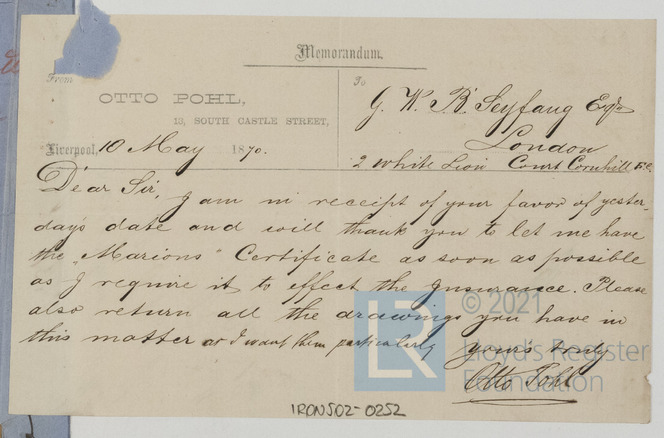 Memorandum.
From
OTTO POHL,
13, SOUTH CASTLE STREET,
Liverpool, 10 May 1870.
To
G. W. B. Seyfang Esqr
London
2 White Lion Court Cornhill E.C.
Dear Sir, I am in receipt of your favor of yester-
day's date and will thank you to let me have
the "Marions" Certificate as soon as possible
as I require it to effect the Insurance. Please
also return all the drawings you have in
this matter as I want them particularly
yours truly
Otto Pohl
© 2021
LR
Lloyd's Register
Foundation
IRON502-0252